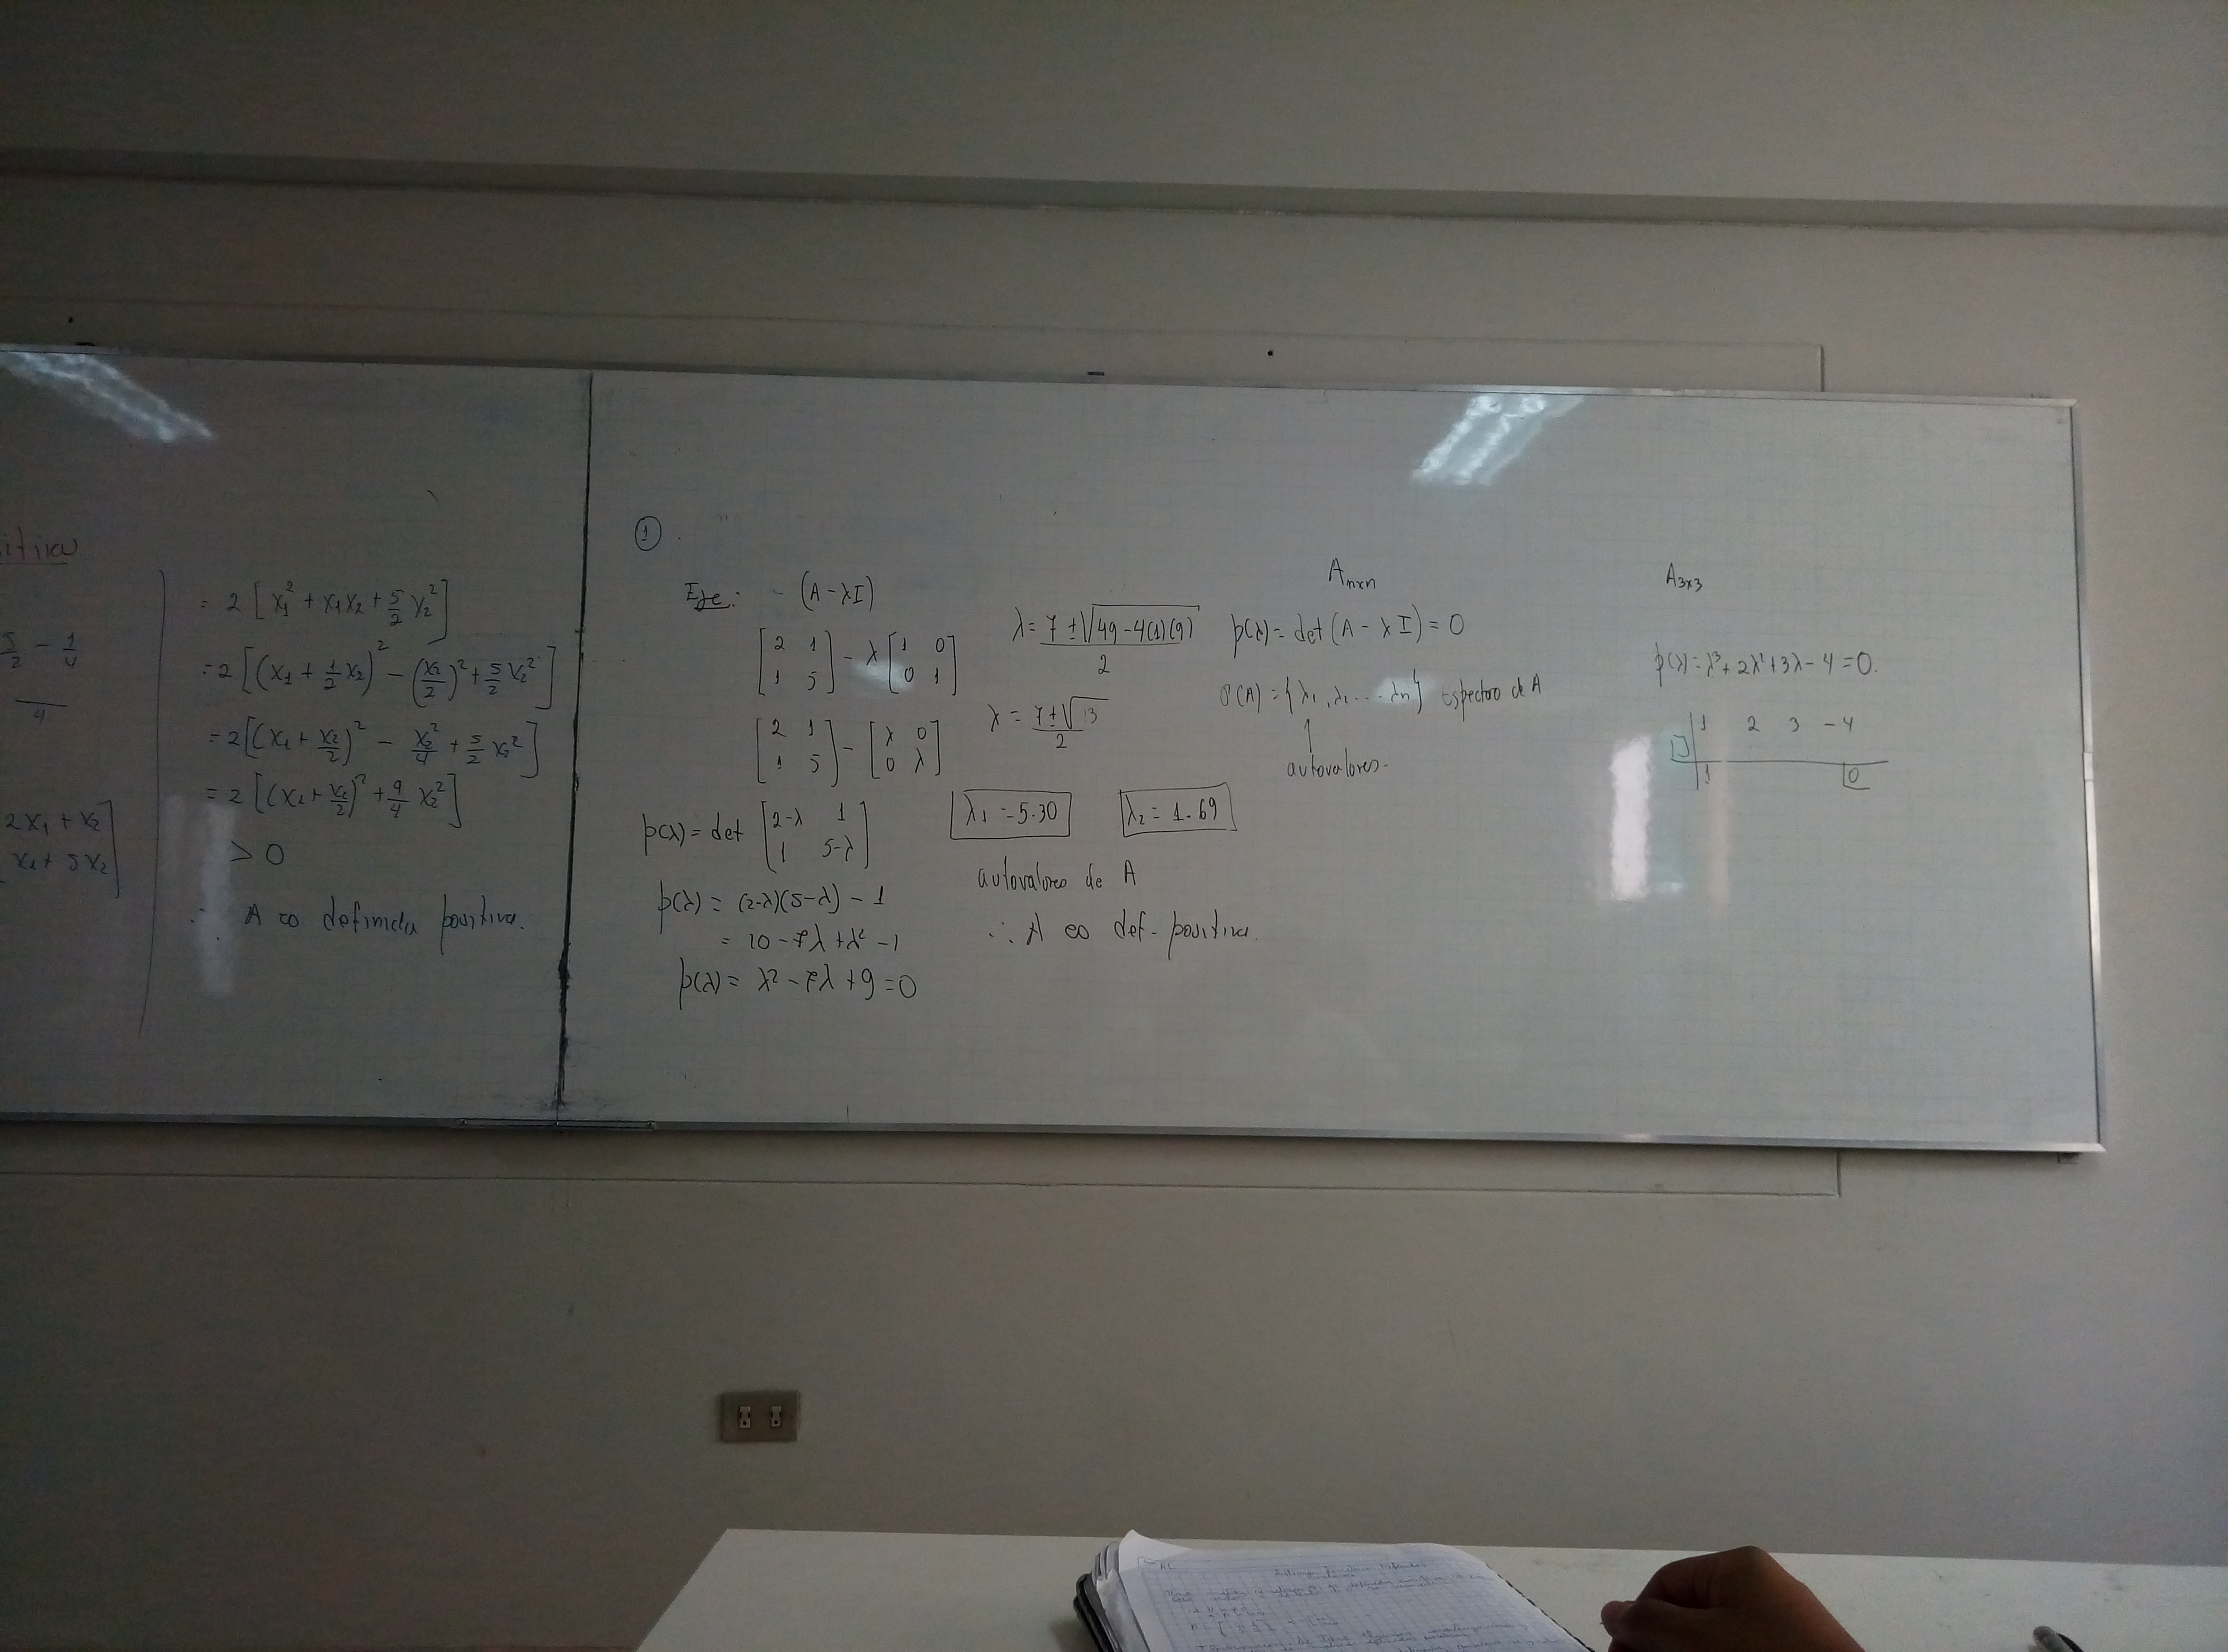 itiva
5/2 - 1/4
4
2x₁ + x₂
x₁ + 5x₂
= 2 [x₁² + x₁x₂ + 5/2 x₂²]
= 2 [(x₁ + 1/2 x₂)² - (x₂/2)² + 5/2 x₂²]
= 2 [(x₁ + x₂/2)² - x₂²/4 + 5/2 x₂²]
= 2 [(x₁ + x₂/2)² + 9/4 x₂²]
> 0
∴ A es definida positiva.
①
Eje: - (A - λI)
[2 1; 1 5] - λ [1 0; 0 1]
[2 1; 1 5] - [λ 0; 0 λ]
p(λ) = det [2-λ 1; 1 5-λ]
p(λ) = (2-λ)(5-λ) - 1
= 10 - 7λ + λ² - 1
p(λ) = λ² - 7λ + 9 = 0
λ = 7 ± √49 - 4(1)(9) / 2
λ = 7 ± √13 / 2
λ₁ = 5.30 λ₂ = 1.69
autovalores de A
∴ A es def. positiva.
Anxn
p(λ) = det (A - λI) = 0
σ(A) = {λ₁, λ₂ ... λn} espectro de A
↑
autovalores.
A3x3
p(λ) = λ³ + 2λ² + 3λ - 4 = 0.
1 2 3 -4
1 0